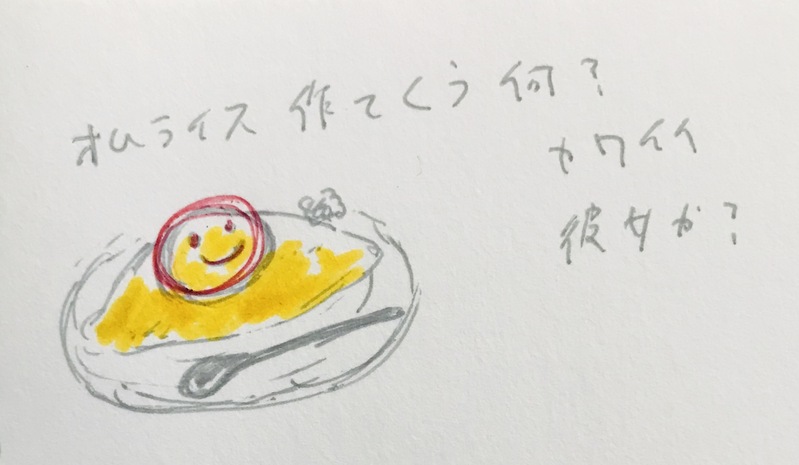 オムライス 作てくう 何?
カワイイ
彼女か?